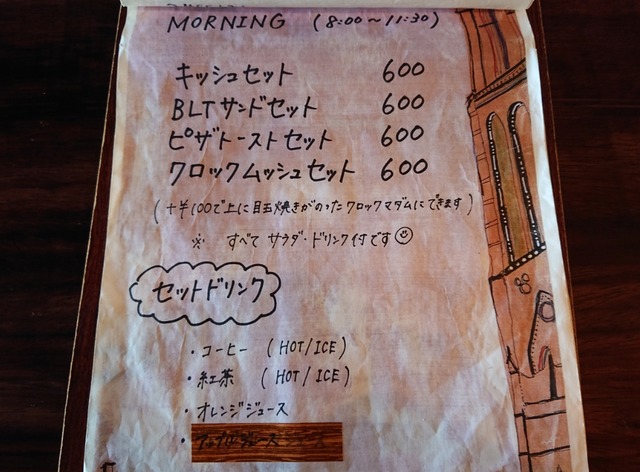 MORNING (8:00～11:30)
キッシュセット 600
BLTサンドセット 600
ピザトーストセット 600
クロックムッシュセット 600
(+¥100で上に目玉焼きがのったクロックマダムにできます)
※ すべて サラダ・ドリンク付です☺
セットドリンク
・コーヒー (HOT/ICE)
・紅茶 (HOT/ICE)
・オレンジジュース